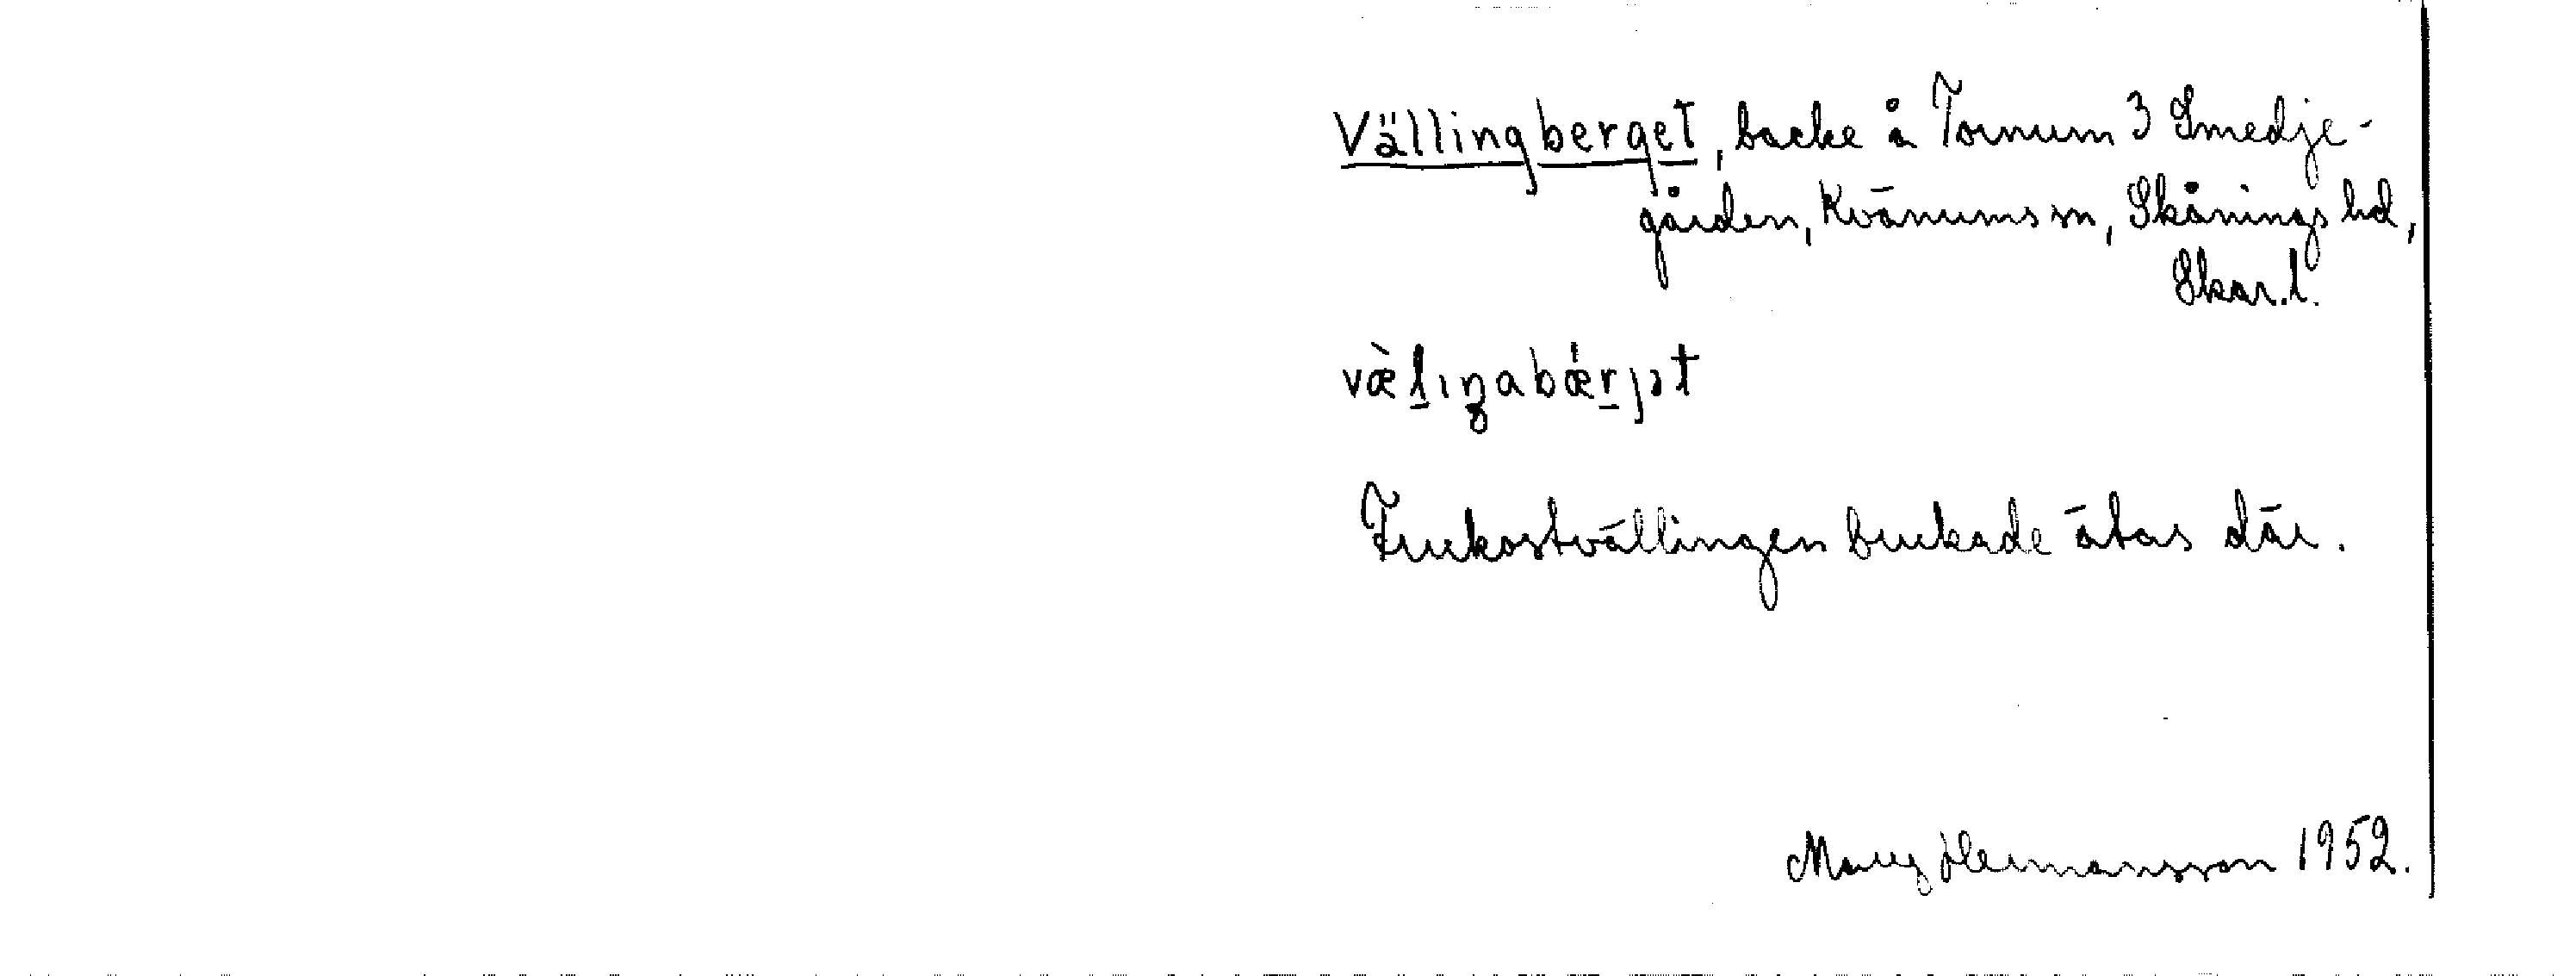 Vällingberget, backe å Tornum 3 Smedje-
gården, Kvänums sn, Skånings hd,
Skar.l.
væ̀lıŋabǽrjət
Frukostvällingen brukade ätas där.
Mary Hermansson 1952.